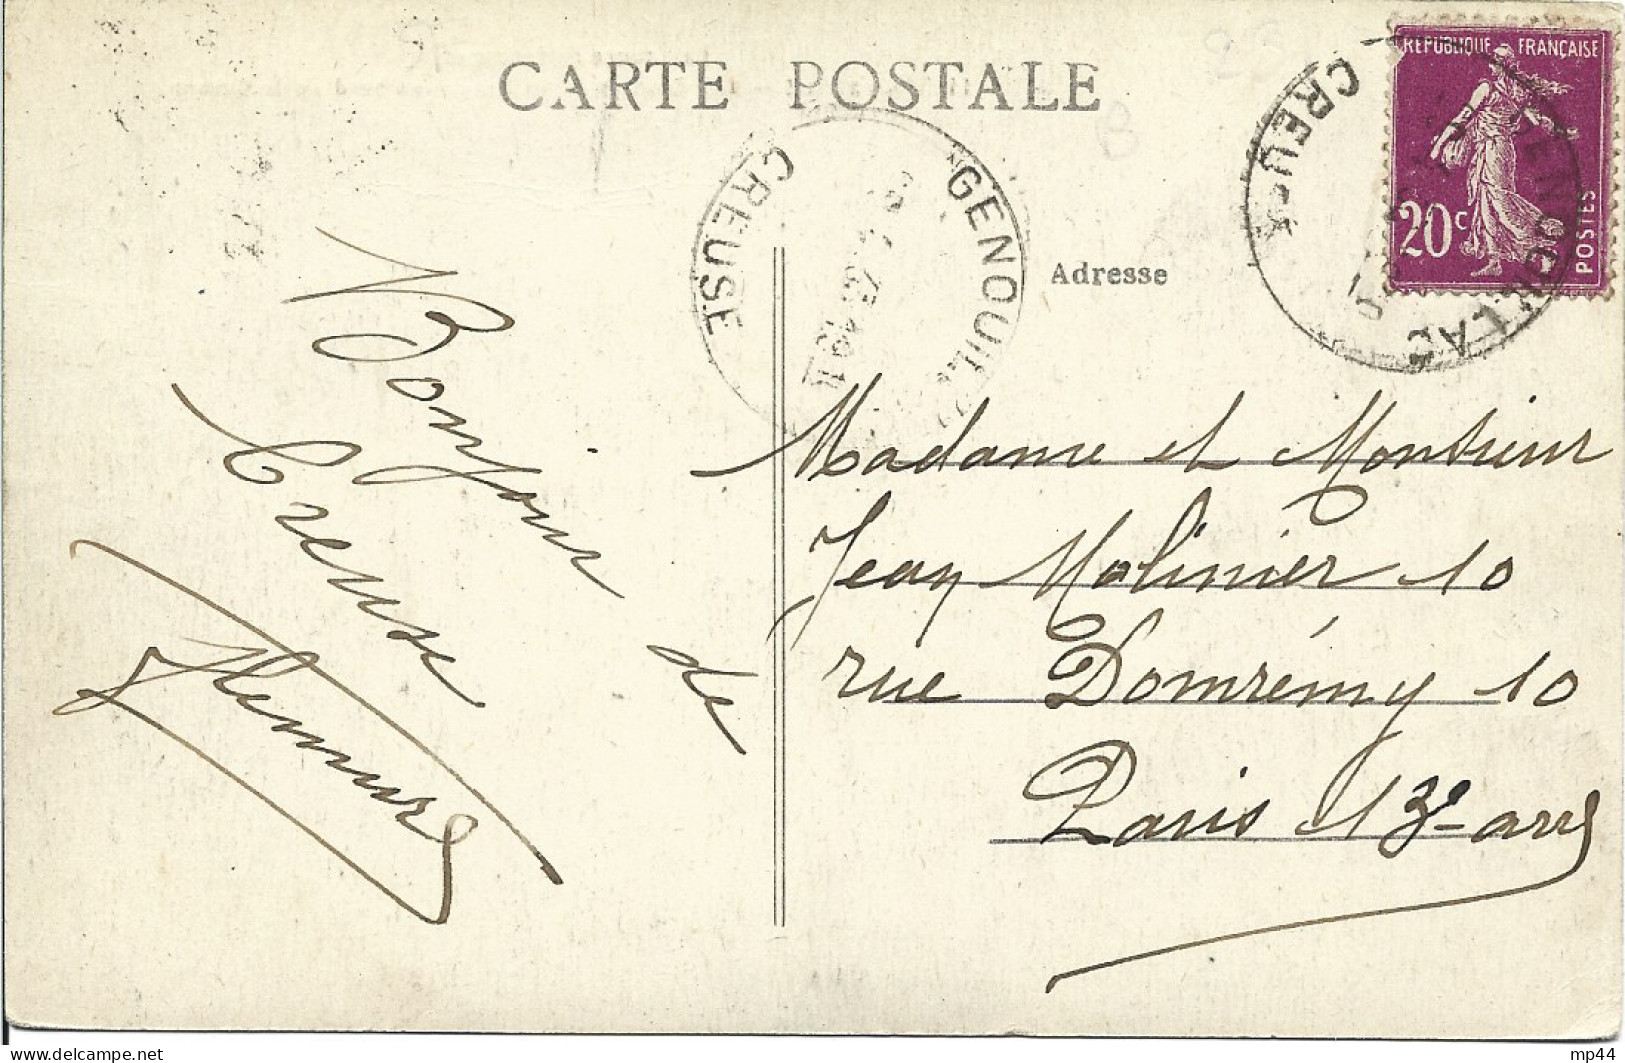 CARTE POSTALE
REPUBLIQUE FRANÇAISE
20c
POSTES
GENOUILLAC
CREUSE
GENOUIL
CREUSE
Adresse
Bonjour de
Creuse
Madame et Monsieur
Jean Molinier 10
rue Domrémy 10
Paris 13e arr
mp44